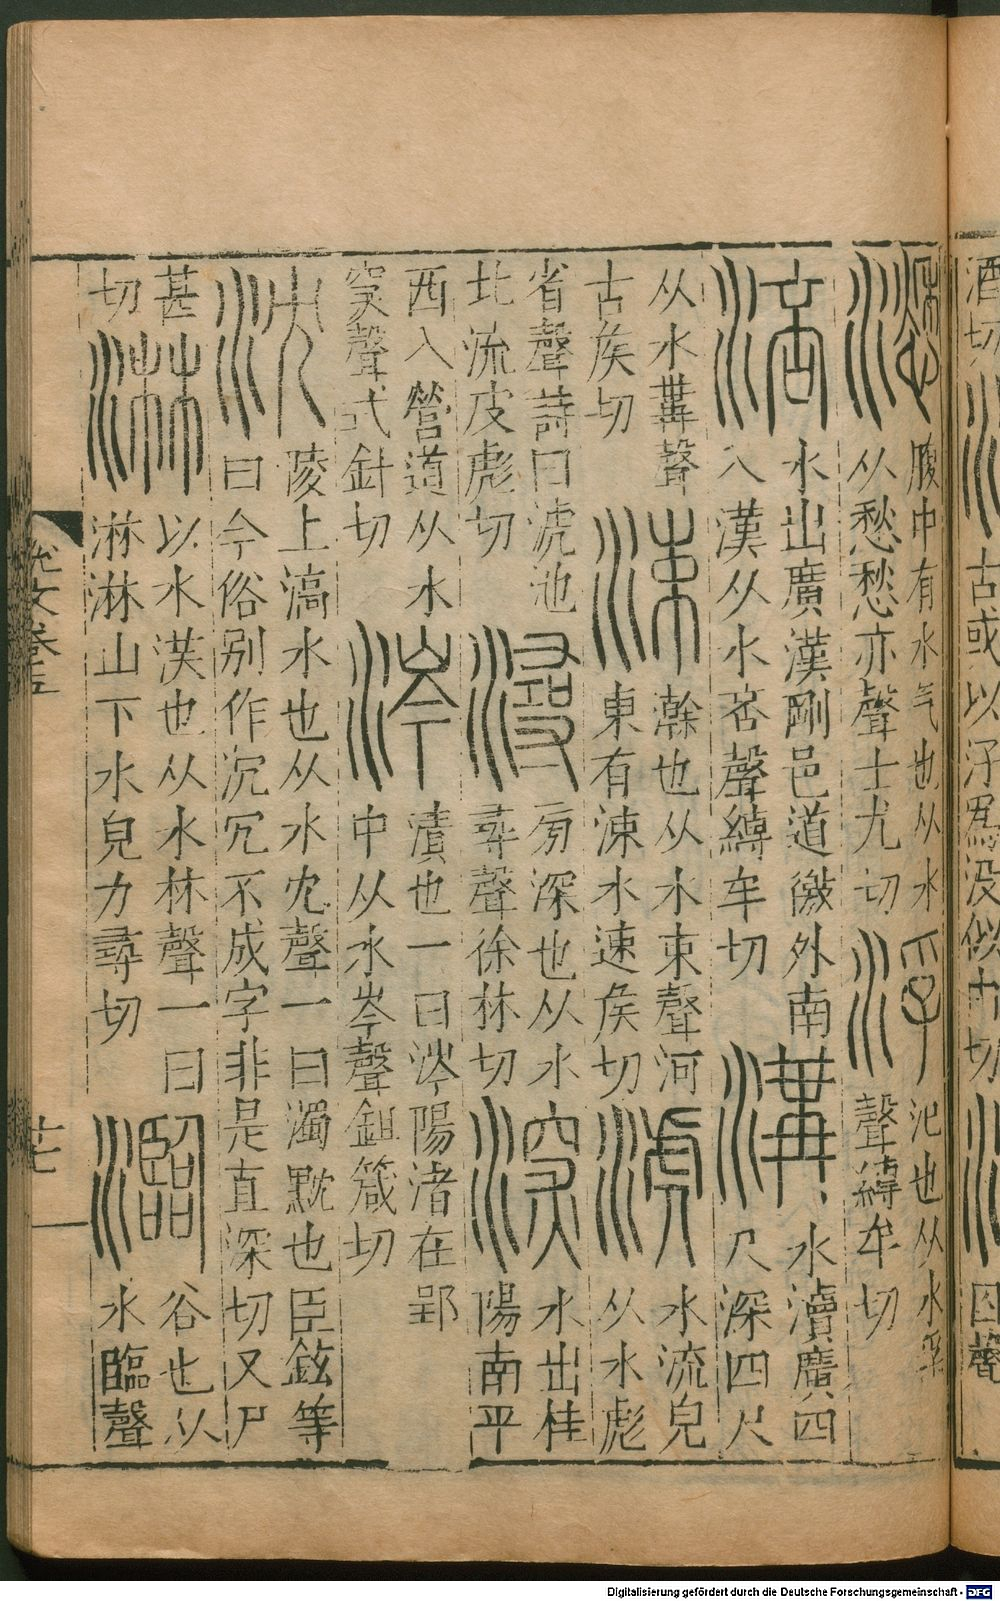 酒切 古或以汓爲没似由切 囚聲
㵞腹中有水气也从水从愁愁亦聲士尤切浮汜也从水孚聲縛牟切
涪水出廣漢剛邑道徼外南入漢从水咅聲縛牟切溝水瀆廣四尺深四尺
从水冓聲古矦切涑瀚也从水束聲河東有涑水速矦切淲水流皃从水彪
省聲詩曰淲池北流皮彪切潯㫄深也从水尋聲徐林切深水出桂陽南平
西入營道从水罙聲式針切涔漬也一曰涔陽渚在郢中从水岑聲鉏箴切
沈陵上滈水也从水冘聲一曰濁黕也臣鉉等曰今俗别作沉冗不成字非是直深切又尸
甚切淋以水渓也从水林聲一曰淋淋山下水皃力尋切瀶谷也从水臨聲
Digitalisierung gefördert durch die Deutsche Forschungsgemeinschaft - DFG